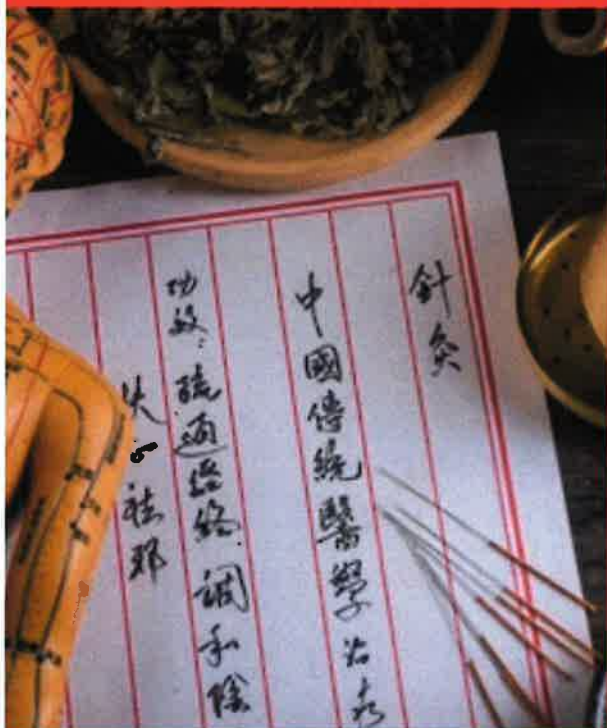 針灸
中國傳統醫學治疗
功效：疏通經絡、調和陰
扶 祛邪